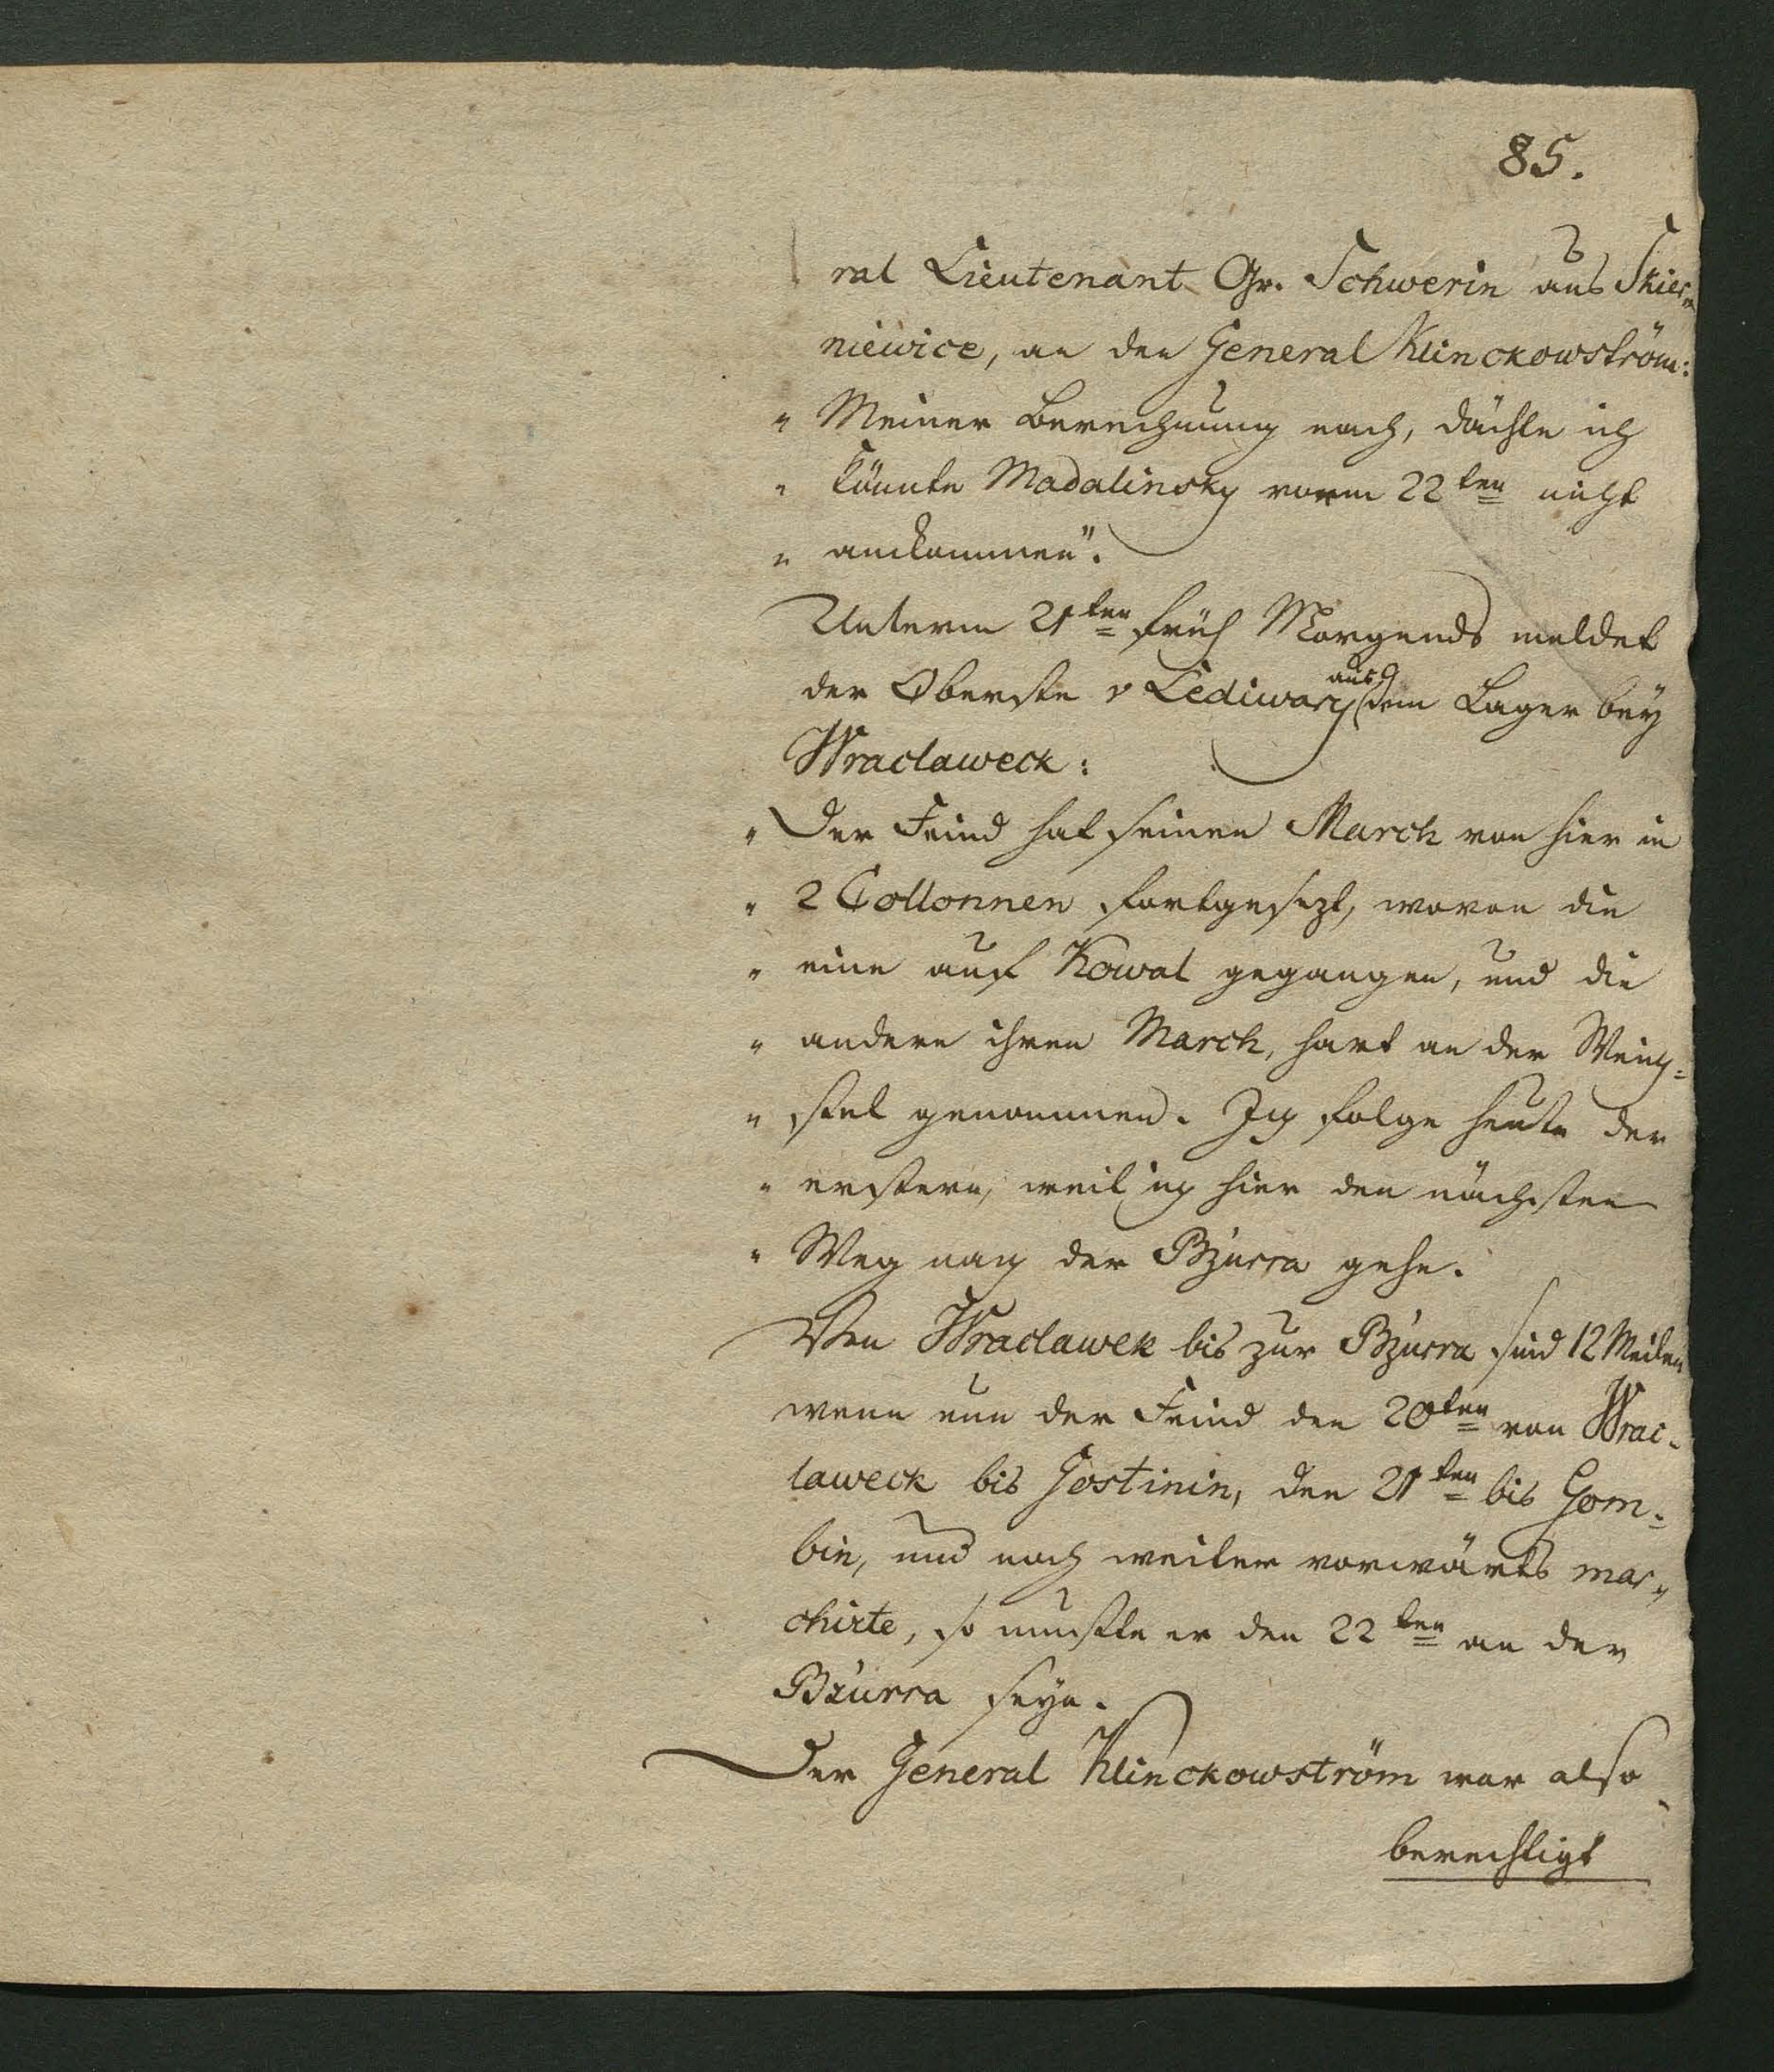 85.
ral Lieutenant Gr. Schwerin aus Skier„
niewice, an den General Klinckowström:
„ Meiner Berechnung nach, dächte ich
„ könnte Madalinsky vorm 22ten nicht
„ ankommen".
Unterm 21ten früh Morgends meldet
der Oberste v Lediwary aus dem Lager bey
Wraclaweck:
„ Der Feind hat seinen March von hier in
„ 2 Collonnen fortgesezt, wovon die
„ eine auf Kowal gegangen, und die
„ andere ihren March, hart an der Weich=
„ sel genommen. Ich folge heute der
„ erstern, weil ich hier den nächsten
„ Weg nach der Bzurra gehe.
Von Wraclawek bis zur Bzurra sind 12 Meilen
wenn nun der Feind den 20ten von Wrac=
laweck bis Gostinin, den 21ten bis Gom=
bin, und noch weiter vorwärts mar„
chirte, so muste er den 22ten an der
Bzurra seyn.
Der General Klinckowström war also
berechtigt